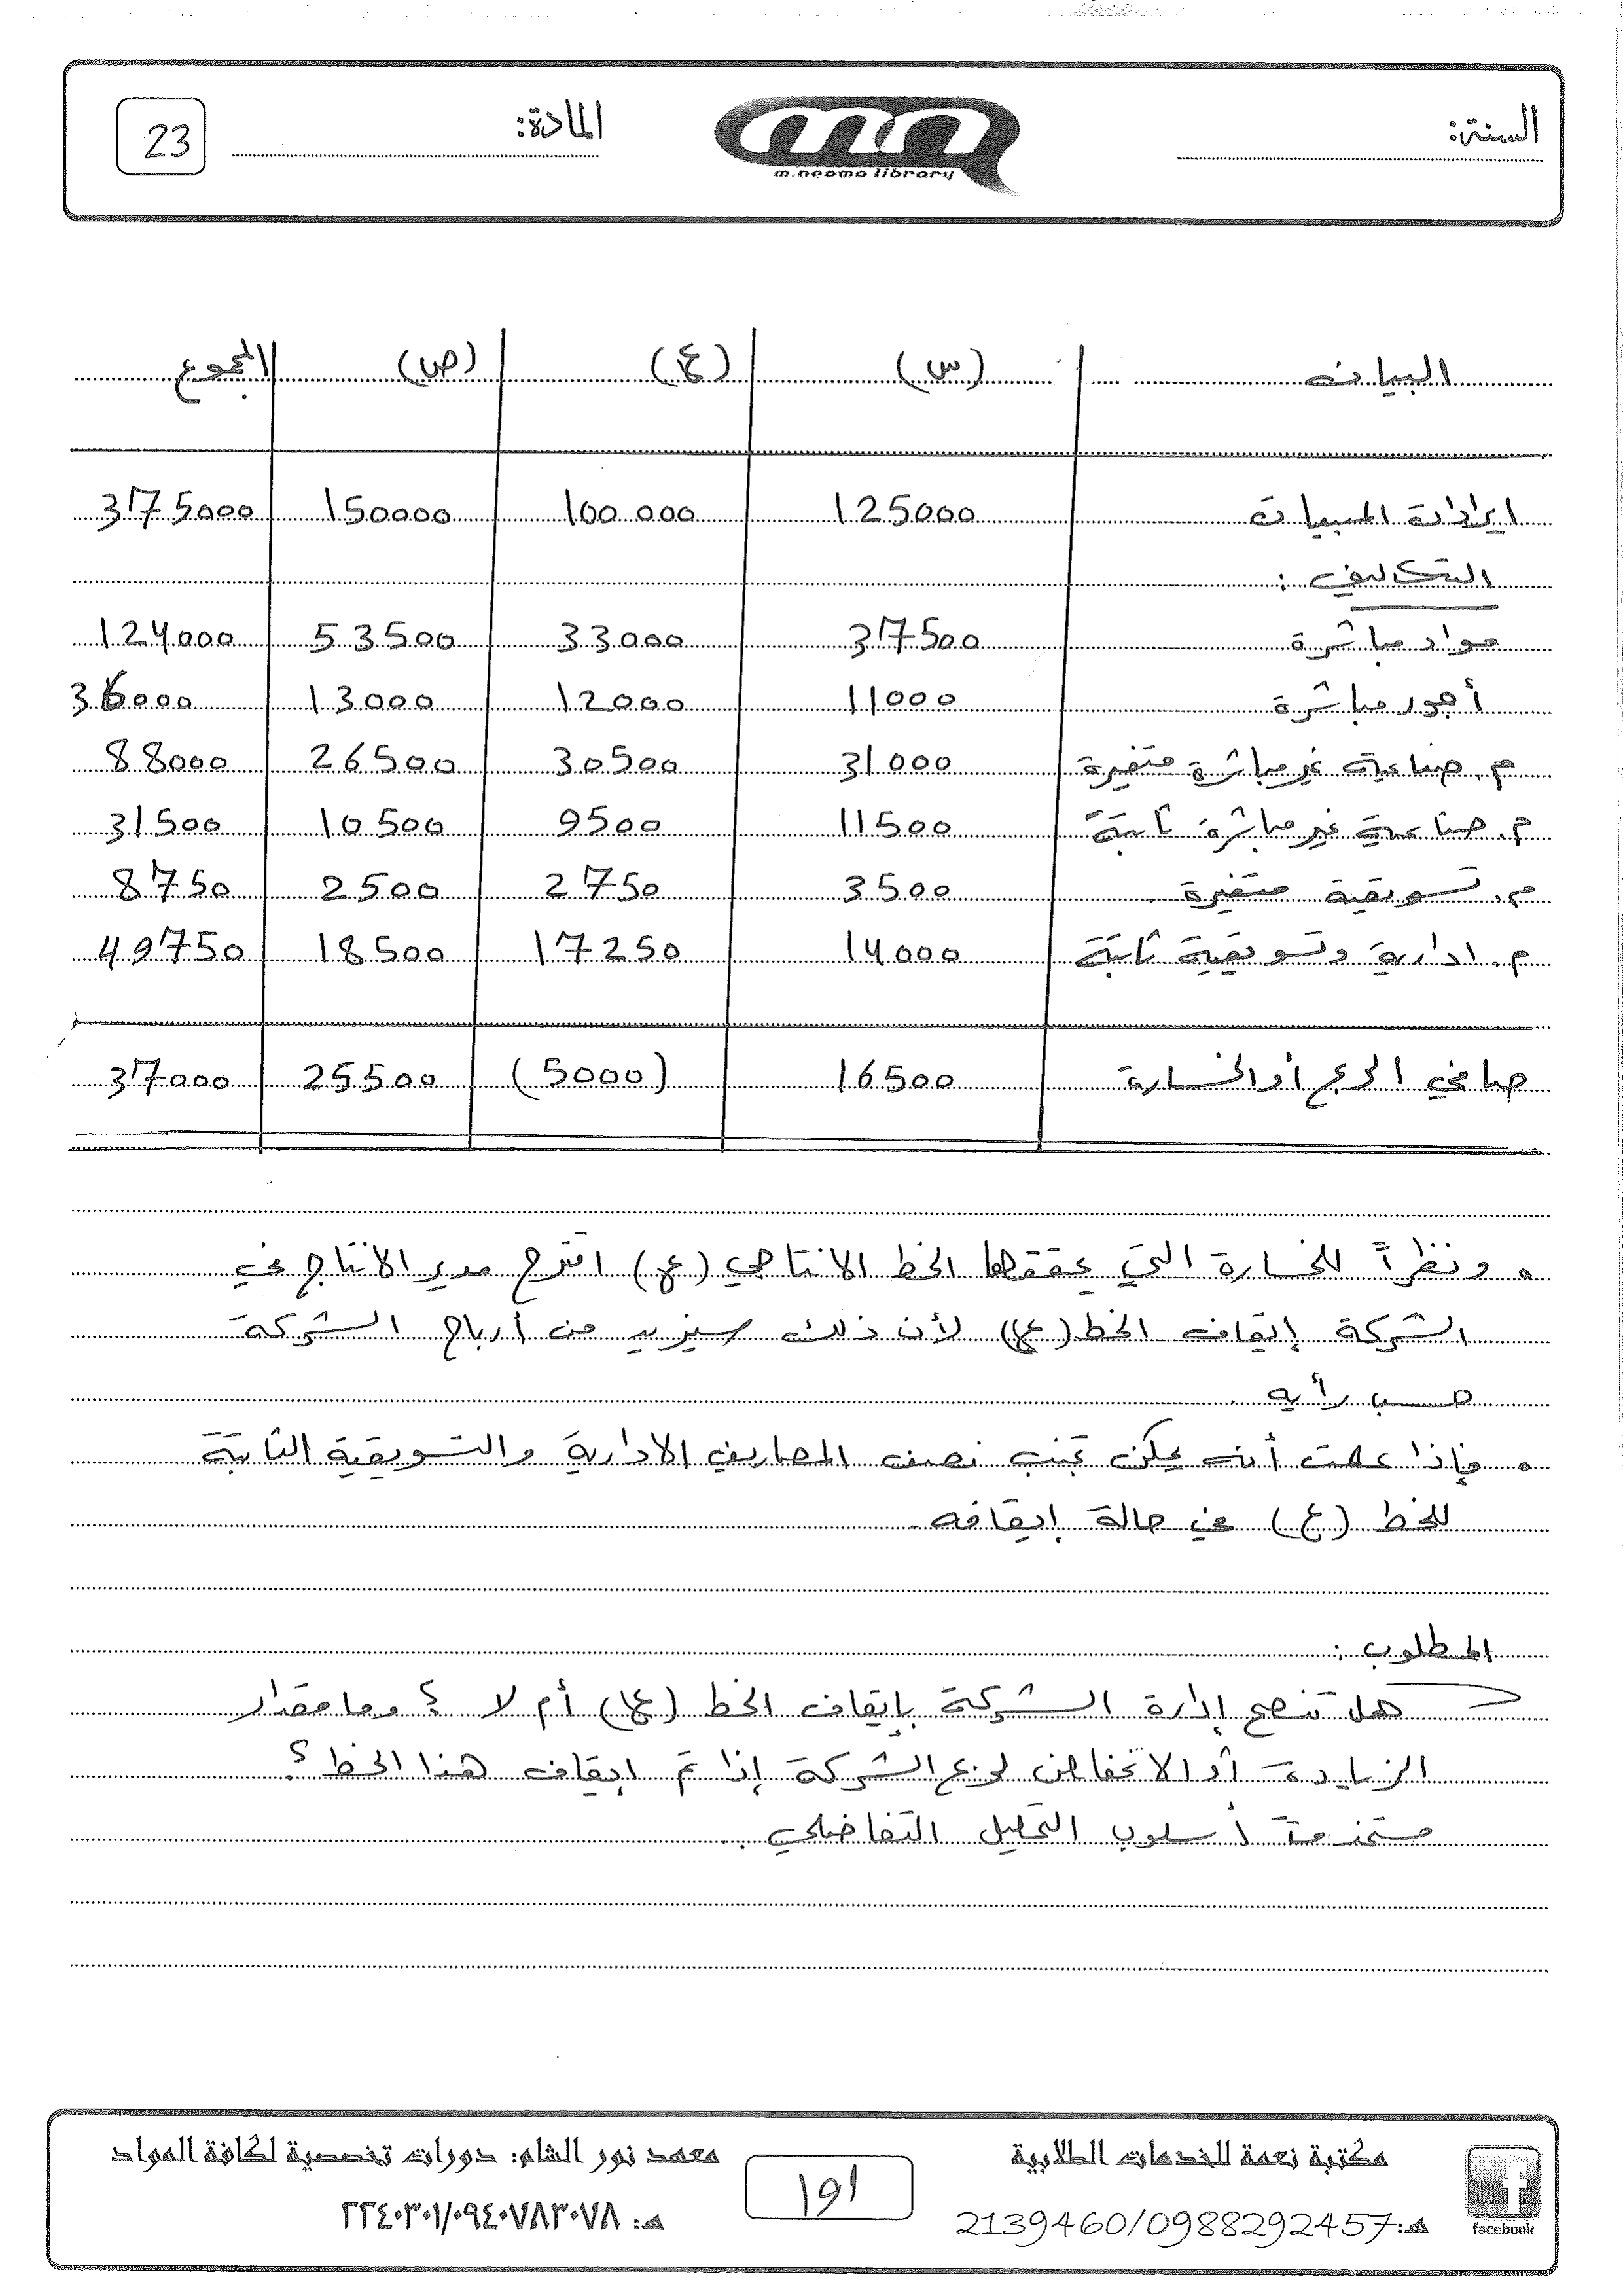 السنة:
m.neama library
المادة:
23
البيان (س) (ع) (ص) المجموع
ايرادات المبيعات 125000 100000 150000 375000
التكاليف :
مواد مباشرة 37500 33000 53500 124000
أجور مباشرة 11000 12000 13000 36000
م. صناعية غير مباشرة متغيرة 31000 30500 26500 88000
م. صناعية غير مباشرة ثابتة 11500 9500 10500 31500
م. تسويقية متغيرة 3500 2750 2500 8750
م. ادارية وتسويقية ثابتة 14000 17250 18500 49750
صافي الربح أو الخسارة 16500 (5000) 25500 37000
• ونظراً للخسارة التي يحققها الخط الانتاجي (ع) اقترح مدير الانتاج في
الشركة إيقاف الخط (ع) لأن ذلك سيزيد من أرباح الشركة
حسب رأيه .
• فإذا علمت أنه يمكن تجنب نصف المصاريف الادارية والتسويقية الثابتة
للخط (ع) في حالة إيقافه.
المطلوب :
هل تنصح إدارة الشركة بإيقاف الخط (ع) أم لا ؟ وما مقدار
الزيادة أو الانخفاض لربح الشركة إذا تم ايقاف هذا الخط ؟
مستخدماً أسلوب التحليل التفاضلي .
facebook
مكتبة نعمة للخدمات الطلابية
هـ: 2139460/0988292457
معهد نور الشام: دورات تخصصية لكافة المواد
هـ: ٢٢٤٠٣٠١/٠٩٤٠٧٨٣٠٧٨